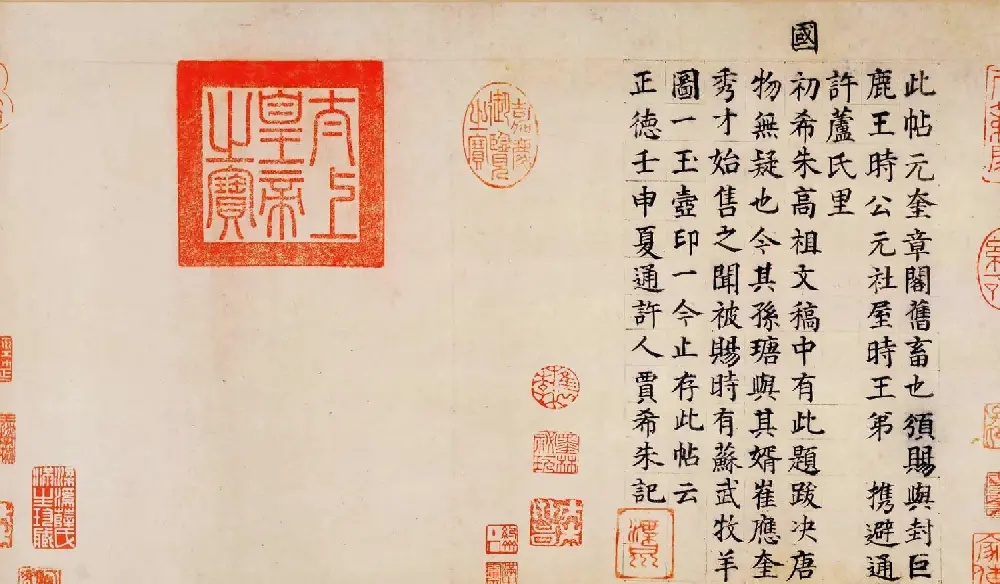 此帖元奎章閣舊畜也頒賜與封巨
鹿王時公元社屋時王第 携避通
許蘆氏里
國初希朱高祖文稿中有此題跋决唐
物無疑也今其孫瑭與其婿崔應奎
秀才始售之聞被賜時有蘇武牧羊
圖一玉壺印一今止存此帖云
正德壬申夏通許人賈希朱記
嘉慶御覽之寶
太上皇帝之寶